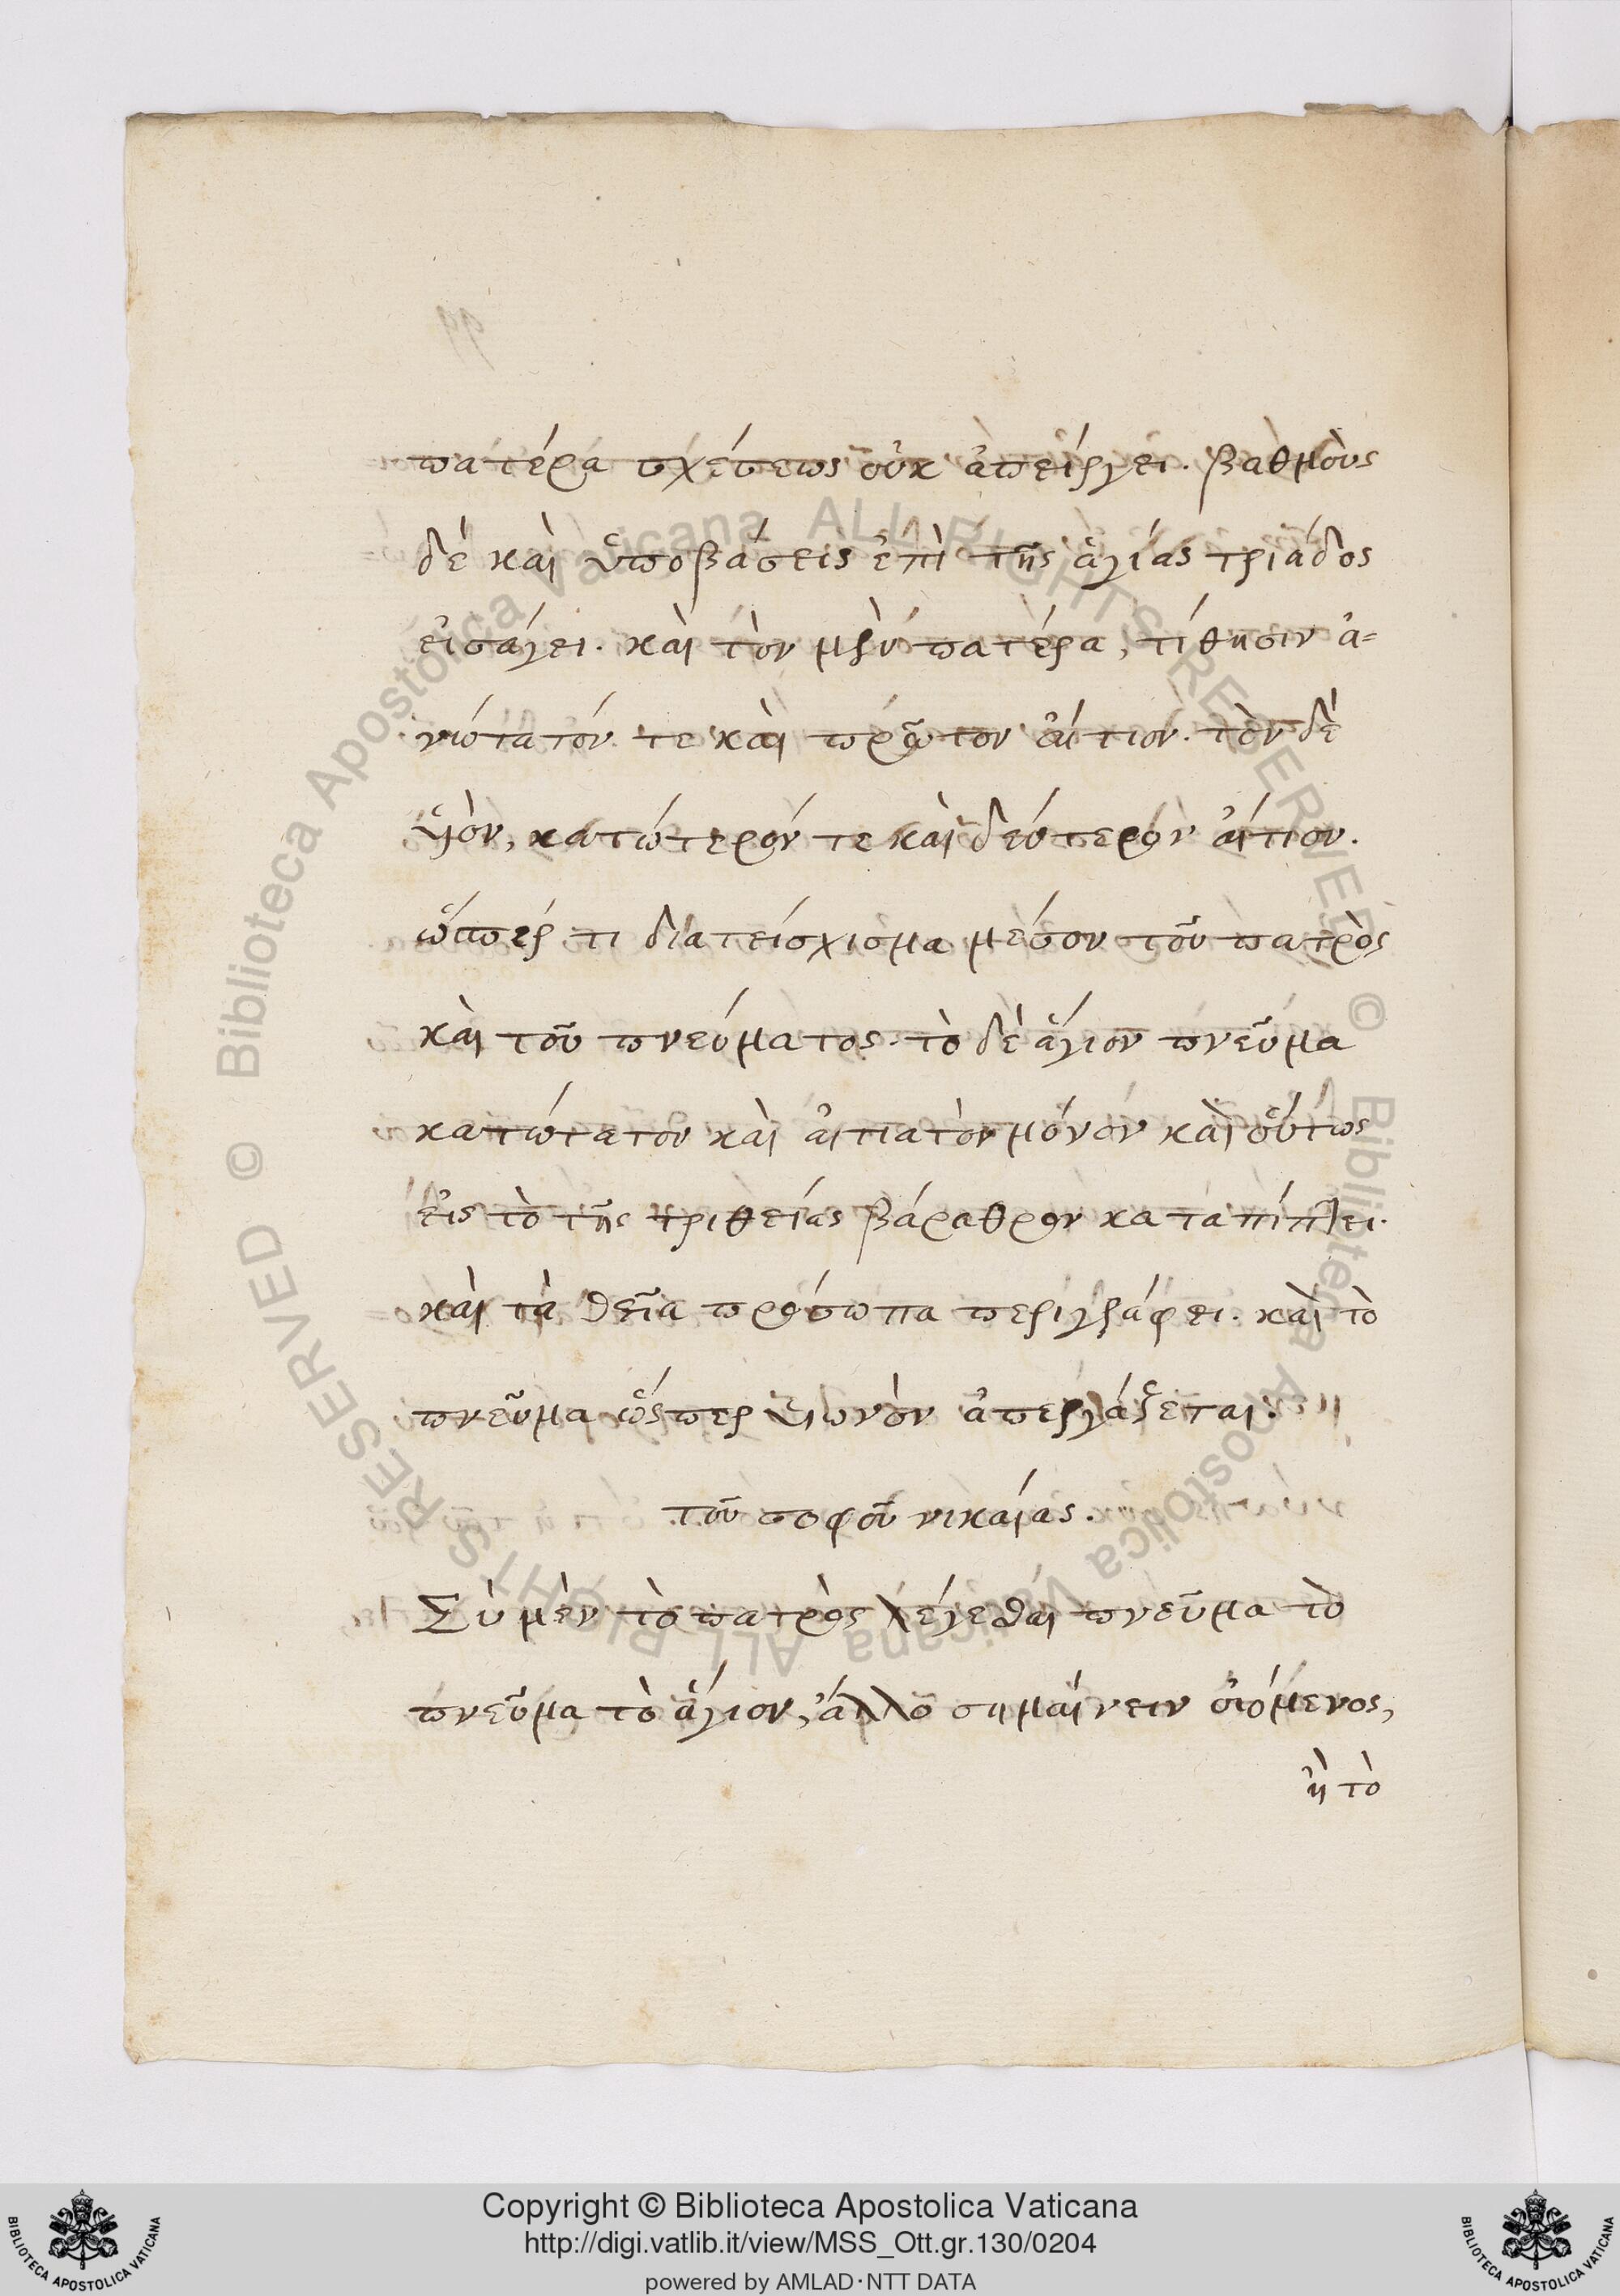 πατέρα σχέσεως οὐκ ἀπείργει. βαθμοὺς
δέ καὶ ὑποβάσεις ἐπὶ τῆς ἁγίας τριάδος
εἰσάγει. καὶ τὸν μὲν πατέρα, τίθησιν ἀ=
νώτατόν τε καὶ πρῶτον αἴτιον. τὸν δὲ
ὑιὸν, κατώτερόν τε καὶ δεύτερον αἴτιον.
ὥσπερ τι διατείσχισμα μέσον τοῦ πατρὸς
καὶ τοῦ πνεύματος. τὸ δὲ ἅγιον πνεῦμα
κατώτατον καὶ αἰτιατὸν μόνον καὶ οὕτως
εἰς τὸ τῆς τριθείας βάραθρον καταπίπτει.
καὶ τὰ θεῖα πρόσωπα περιγράφει. καὶ τὸ
πνεῦμα ὥσπερ ὑιωνὸν ἀπεργάζεται.
τοῦ σοφοῦ νικαίας.
Σὺ μὲν τὸ πατρὸς λέγεσθαι πνεῦμα τὸ
πνεῦμα τὸ ἅγιον, ἄλλο σημαίνειν οἰόμενος,
ἢ τὸ
© Biblioteca Apostolica Vaticana ALL RIGHTS RESERVED
© Biblioteca Apostolica Vaticana ALL RIGHTS RESERVED
Copyright © Biblioteca Apostolica Vaticana
http://digi.vatlib.it/view/MSS_Ott.gr.130/0204
powered by AMLAD·NTT DATA
BIBLIOTECA APOSTOLICA VATICANA
BIBLIOTECA APOSTOLICA VATICANA